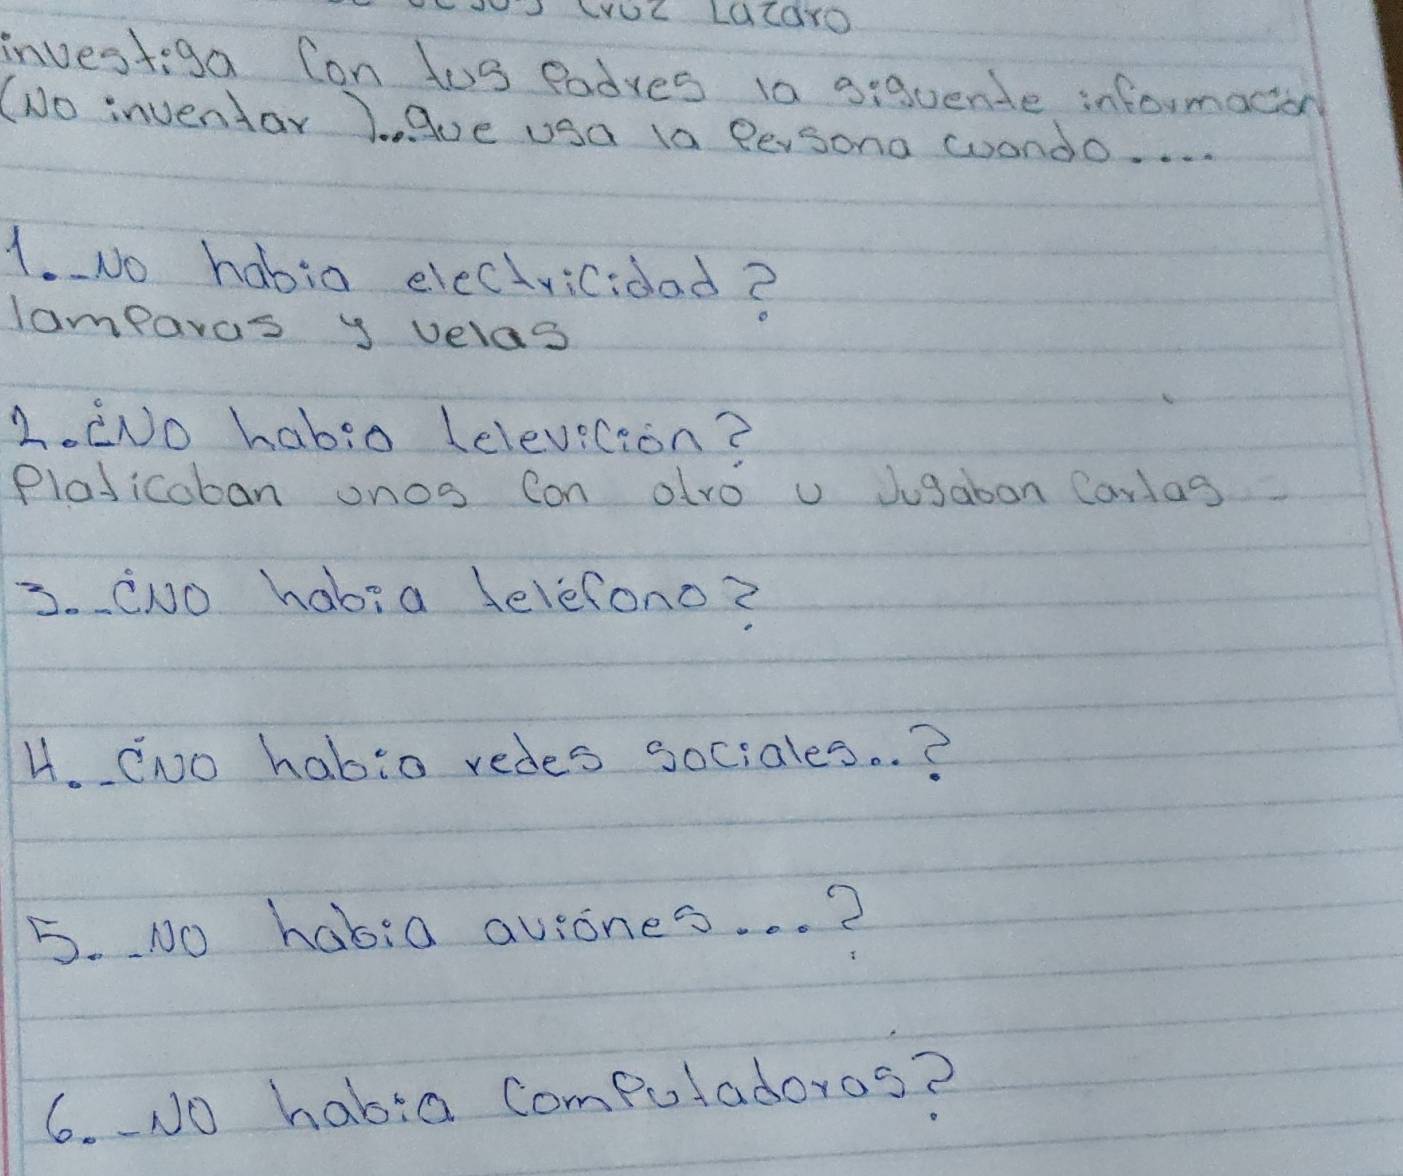 Cruz Lazaro
investiga Con tus Padres la siguente información
(No inventar )..que usa la Persona cuando....
1.-No habia electricidad?
lamParas y velas
2.¿No habia televición?
Platicaban unos Con otro u Jugaban Cartas -
3.-¿No habia teléfono?
4.-¿No habia redes sociales..?
5.-No habia auiónes...?
6.-No habia ComPutadoras?